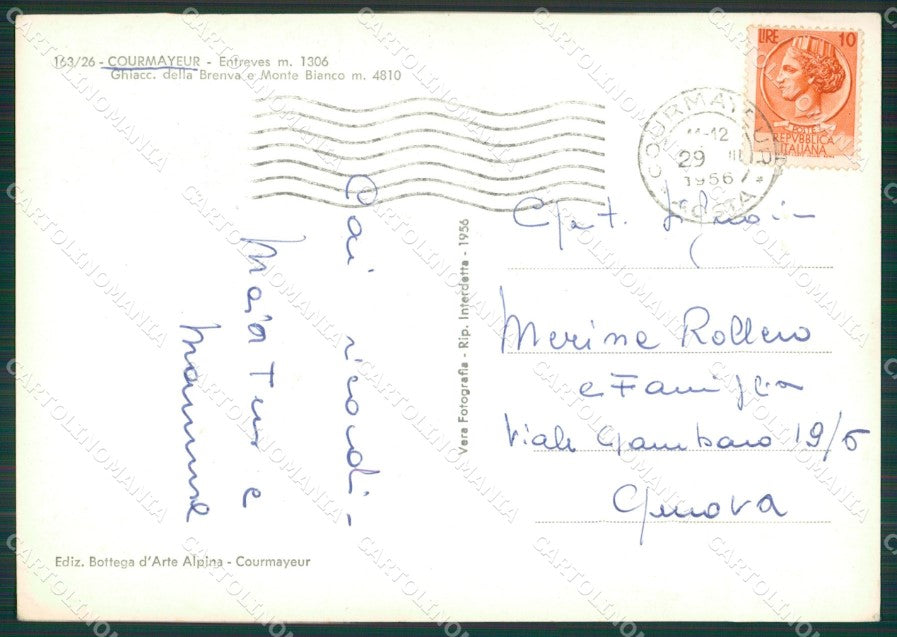 163/26 - COURMAYEUR - Entreves m. 1306
Ghiacc. della Brenva e Monte Bianco m. 4810
LIRE 10
POSTE
REPVBBLICA
ITALIANA
COURMAYEUR
11-12
29 III
1956
AOSTA
Vera Fotografia - Rip. Interdetta - 1956
Cai ricordi -
e
Merine Rollero
e Famiglia
Viale Gambaro 19/5
Genova
Ediz. Bottega d'Arte Alpina - Courmayeur
CARTOLINOMANIA